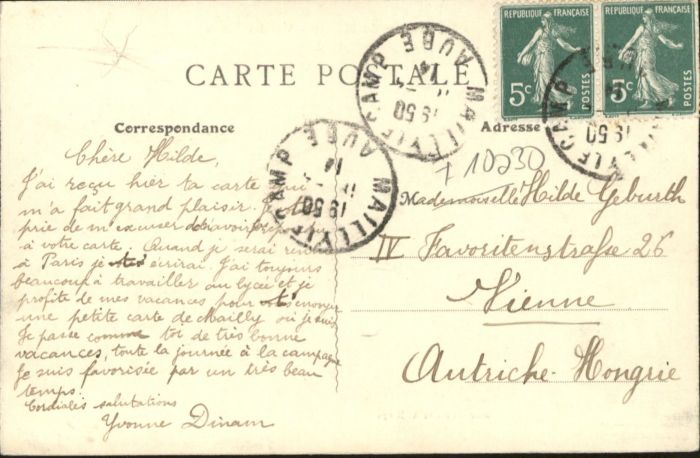 CARTE POSTALE
Correspondance
Adresse
REPUBLIQUE FRANÇAISE
5c POSTES
REPUBLIQUE FRANÇAISE
5c POSTES
MAILLY LE CAMP AUBE
19 50
MAILLY LE CAMP AUBE
19 50
MAILLY LE CAMP
19 50
Chère Hilde,
J'ai reçu hier ta carte qui
m'a fait grand plaisir. Je
prie de m'excuser
à votre carte. Quand je serai
à Paris je écrirai. J'ai toujours
beaucoup à travailler au lycée et je
profite de mes vacances pour envoyer
une petite carte de Mailly où je suis
Je passe comme toi de très bonne
vacances, toute la journée à la campagne
Je suis favorisée par un très beau
temps.
Cordiales salutations
Yvonne Dinam
+ 10230
Mademoiselle Hilde Geburth
IV Favoritenstraße 26
Vienne
Autriche-Hongrie